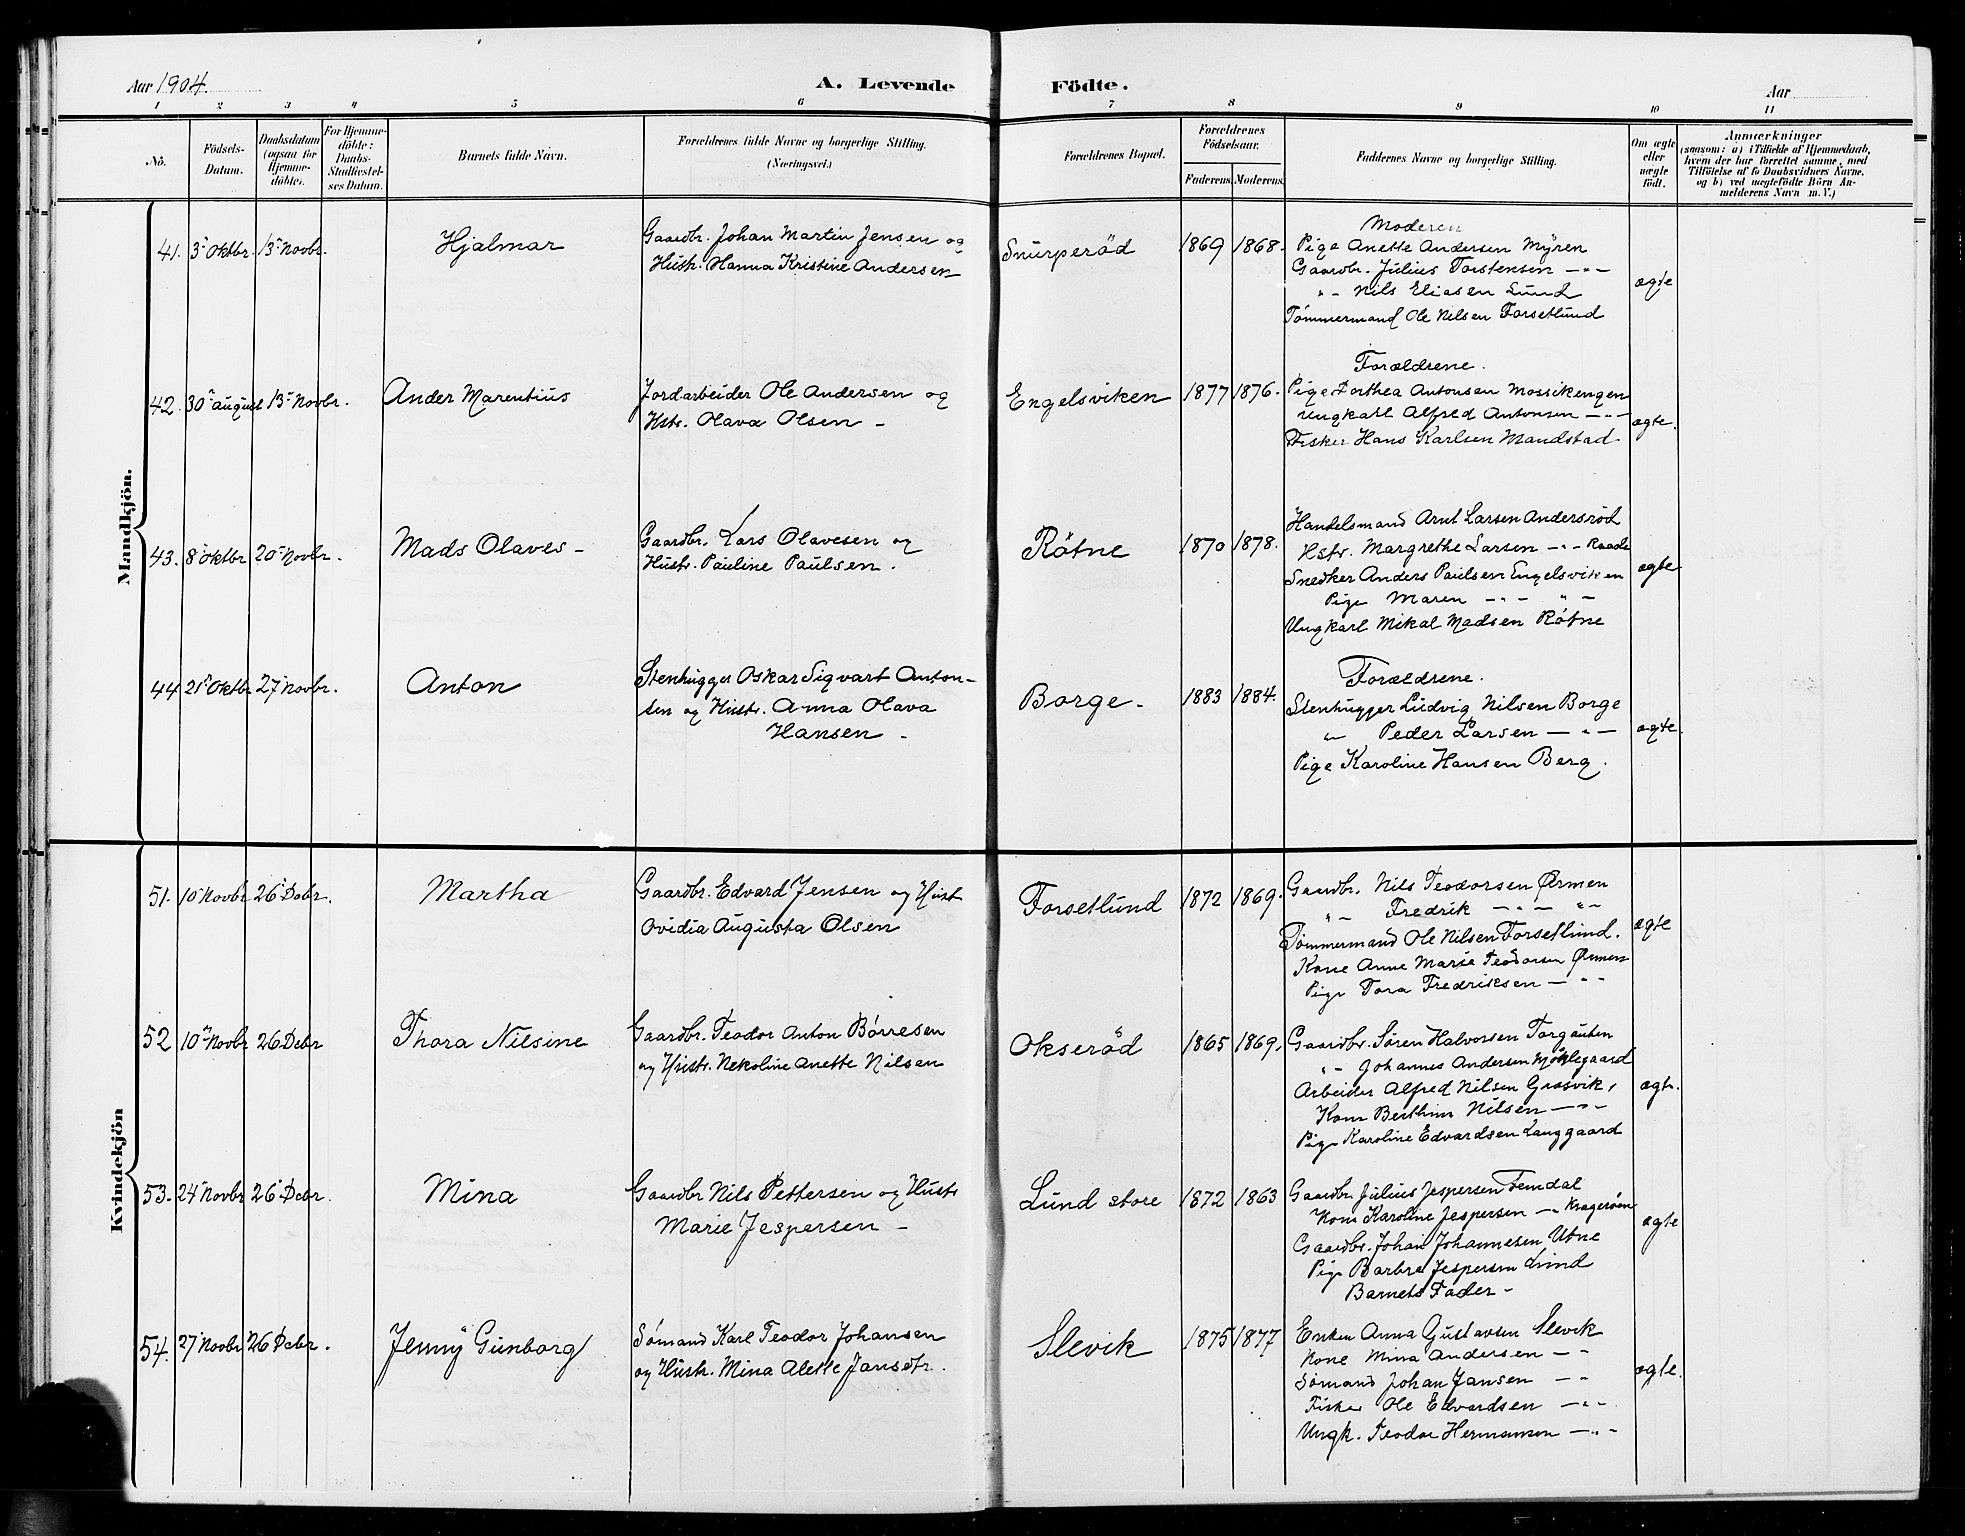 Aar 1904.
A. Levende Födte.
Aar
1 2 3 4 5 6 7 8 9 10 11
No.
Födsels-
Datum.
Daabsdatum
(ogsaa for
Hjemme-
döbte).
For Hjemme-
döbte:
Daabs-
Stadfæstel-
ses Datum.
Barnets fulde Navn.
Forældrenes fulde Navne og borgerlige Stilling.
(Næringsvei.)
Forældrenes Bopæl.
Forældrenes
Födselsaar.
Faderens. Moderens.
Faddernes Navne og borgerlige Stilling.
Om ægte
eller
uægte
födt.
Anmærkninger
(saasom: a) i Tilfælde af Hjemmedaab,
hvem der har forrettet samme, med
Tilföielse af to Daabsvidners Navne,
og b) ved uægtefödte Börn An-
melderens Navn m. V.)
Mandkjön.
41. 3 Oktbr. 13 Novbr.
Hjalmar
Gaardbr. Johan Martin Jensen og
Hustr. Hanna Kristine Andersen
Snurperöd
1869 1868.
Moderen
Pige Anette Andersen Myren
Gaardbr. Julius Torstensen — " —
" — Nils Eliasen Lund
Tømmermand Ole Nilsen Forsetlund
ægte
42. 30 august 13 Novbr.
Ander Marentius
Jordarbeider Ole Andersen og
Hstr. Olava Olsen -
Engelsviken
1877 1876.
Forældrene.
Pige Dorthea Antonsen Mossikengen
Ungkarl Alfred Antonsen — " —
Fisker Hans Karlsen Mandstad
ægte.
43. 8 Oktbr 20 Novbr.
Mads Olaves -
Gaardbr. Lars Olavesen og
Hustr. Pauline Paulsen.
Røtne
1870 1878.
Handelsmand Arnt Larsen Andersröd
Hstr. Margrethe Larsen — " — Raade
Snedker Anders Paulsen Engelsviken
Pige Maren — " — " —
Ungkarl Mikal Madsen Røtne
ægte
44 21 Oktbr 27 Novbr.
Anton
Stenhugger Oskar Sigvart Anton-
sen og Hustr. Anna Olava
Hansen -
Borge -
1883 1884.
Forældrene.
Stenhugger Ludvig Nilsen Borge
" Peder Larsen — " —
Pige Karoline Hansen Berg.
ægte.
Kvindekjön
51. 10 Novbr 26 Debr.
Martha
Gaardbr. Edvard Jensen og Hust
Ovidia Augusta Olsen
Forsetlund
1872 1869.
Gaardbr. Nils Teodorsen Ørmen
" — Fredrik — " — " —
Tømmermand Ole Nilsen Forsetlund.
Kone Anne Marie Teodorsen Ørmen
Pige Tora Fredriksen — " -
ægte
52 10 Novbr 26 Debr
Thora Nilsine
Gaardbr. Teodor Anton Børresen
og Hustr. Nekoline Anette Nilsen
Okseröd
1865 1869.
Gaardbr. Søren Halvorsen Torgauten
" — Johannes Andersen Møklegaard
Arbeider Alfred Nilsen Gressvik,
Kone Berthine Nilsen — " -
Pige Karoline Edvardsen Langgaard
ægte.
53. 24 Novbr 26 Debr.
Mina
Gaardbr Nils Pettersen og Hustr
Marie Jespersen -
Lund store
1872 1863
Gaardbr. Julius Jespersen Femdal
Kone Karoline Jespersen — " Kragerøen
Gaardbr. Johan Johannesen Utne
Pige Barbra Jespersen Lund
Barnets Fader -
ægte
54. 27 Novbr 26 Debr.
Jenny Gunborg
Sømand Karl Teodor Johansen
og Hustr. Mina Alette Jansdtr.
Slevik
1875 1877
Enken Anna Gustavsen Slevik
Kone Mina Andersen — "
Sømand Johan Jansen — "
Fisker Ole Edvardsen — " -
Ungk. Teodor Hermansen — " -
ægte.